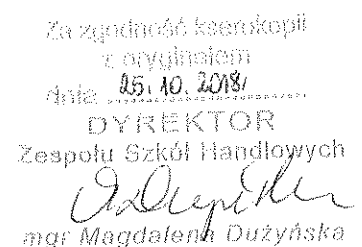 Za zgodność kserokopii
z oryginałem
dnia 25.10.2018
DYREKTOR
Zespołu Szkół Handlowych
mgr Magdalena Dużyńska